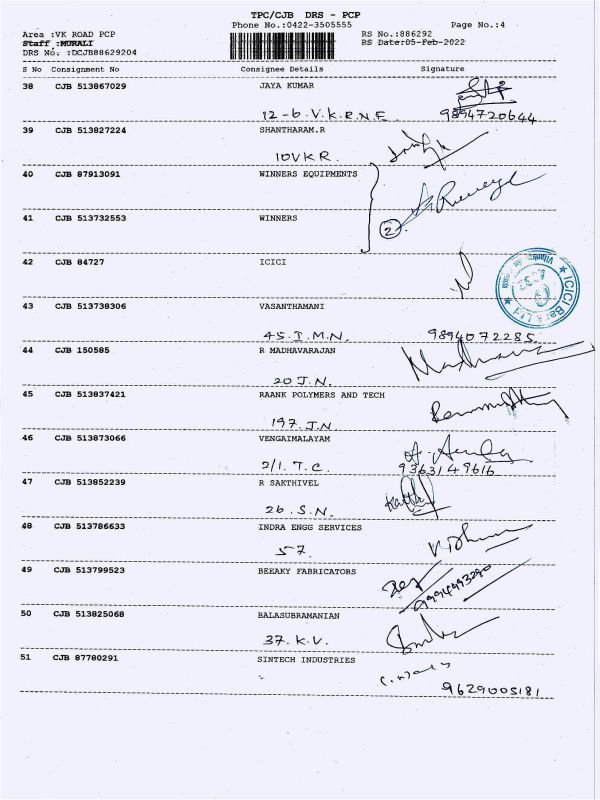 TPC/CJB DRS - PCP
Phone No.:0422-3505555 Page No.:4
Area :VK ROAD PCP RS No.:886292
Staff :MURALI RS Date:05-Feb-2022
DRS No. :DCJB88629204
S No Consignment No Consignee Details Signature
38 CJB 513867029 JAYA KUMAR
12-6. V.K.R.N.E. 9894720644
39 CJB 513827224 SHANTHARAM.R
10 V K R.
40 CJB 87913091 WINNERS EQUIPMENTS
41 CJB 513732553 WINNERS
2
42 CJB 84727 ICICI
ICICI Bank Ltd
43 CJB 513738306 VASANTHAMANI
45. I.M.N. 9894072285
44 CJB 150585 R MADHAVARAJAN
20 J.N.
45 CJB 513837421 RAANK POLYMERS AND TECH
197. J.N.
46 CJB 513873066 VENGAIMALAYAM
2/1. T.C. 9363149616
47 CJB 513852239 R SAKTHIVEL
26. S.N.
48 CJB 513786633 INDRA ENGG SERVICES
57.
49 CJB 513799523 BEEAKY FABRICATORS
9994493290
50 CJB 513825068 BALASUBRAMANIAN
37. K.V.
51 CJB 87780291 SINTECH INDUSTRIES
9629005181